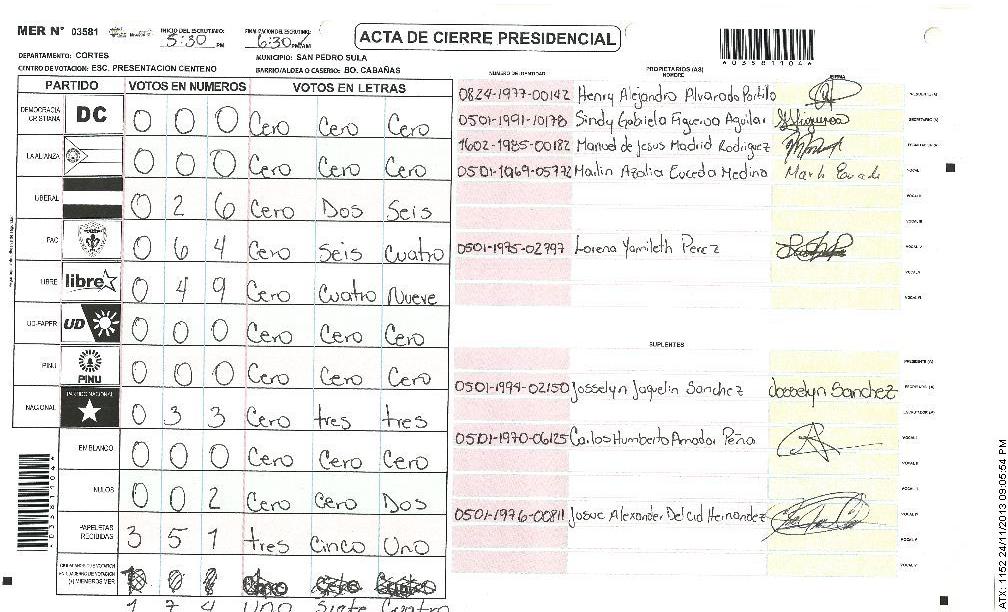 MER N° 03581 INICIO DEL ESCRUTINIO: 5:30 PM FINALIZACION DEL ESCRUTINIO: 6:30 PM/AM ACTA DE CIERRE PRESIDENCIAL
DEPARTAMENTO: CORTES MUNICIPIO: SAN PEDRO SULA
CENTRO DE VOTACION: ESC. PRESENTACION CENTENO BARRIO/ALDEA O CASERIO: BO. CABAÑAS
PARTIDO VOTOS EN NUMEROS VOTOS EN LETRAS
DEMOCRACIA CRISTIANA DC 0 0 0 Cero Cero Cero
LA ALIANZA 0 0 0 Cero Cero Cero
LIBERAL 0 2 6 Cero Dos Seis
PAC 0 6 4 Cero Seis Cuatro
LIBRE libre 0 4 9 Cero Cuatro Nueve
UD-FAPER UD 0 0 0 Cero Cero Cero
PINU PINU 0 0 0 Cero Cero Cero
NACIONAL PARTIDO NACIONAL 0 3 3 Cero tres tres
EN BLANCO 0 0 0 Cero Cero Cero
NULOS 0 0 2 Cero Cero Dos
PAPELETAS RECIBIDAS 3 5 1 tres Cinco Uno
(+) MIEMBROS MER
1 7 4 Uno Siete Cuatro
NUMERO DE IDENTIDAD PROPIETARIOS (AS) NOMBRE FIRMA
0824-1977-00142 Henry Alejandro Alvarado Portillo PRESIDENTE (A)
0501-1991-10178 Sindy Gabriela Figueroa Aguilar SECRETARIO (A)
1602-1985-00182 Manuel de Jesus Madrid Rodriguez ESCRUTADOR (A)
0501-1969-05772 Mailin Azalia Euceda Medina VOCAL I
VOCAL II
VOCAL III
0501-1975-02797 Lorena Yamileth Perez VOCAL IV
VOCAL V
VOCAL VI
SUPLENTES
PRESIDENTE (A)
0501-1994-02150 Josselyn Jaquelin Sanchez Josselyn Sanchez SECRETARIO (A)
ESCRUTADOR (A)
0501-1970-06125 Carlos Humberto Amador Peña VOCAL I
VOCAL II
VOCAL III
0501-1976-00811 Josue Alexander Del cid Hernandez VOCAL IV
VOCAL V
VOCAL VI
ATX: 1152 24/11/2013 09:05:54 PM